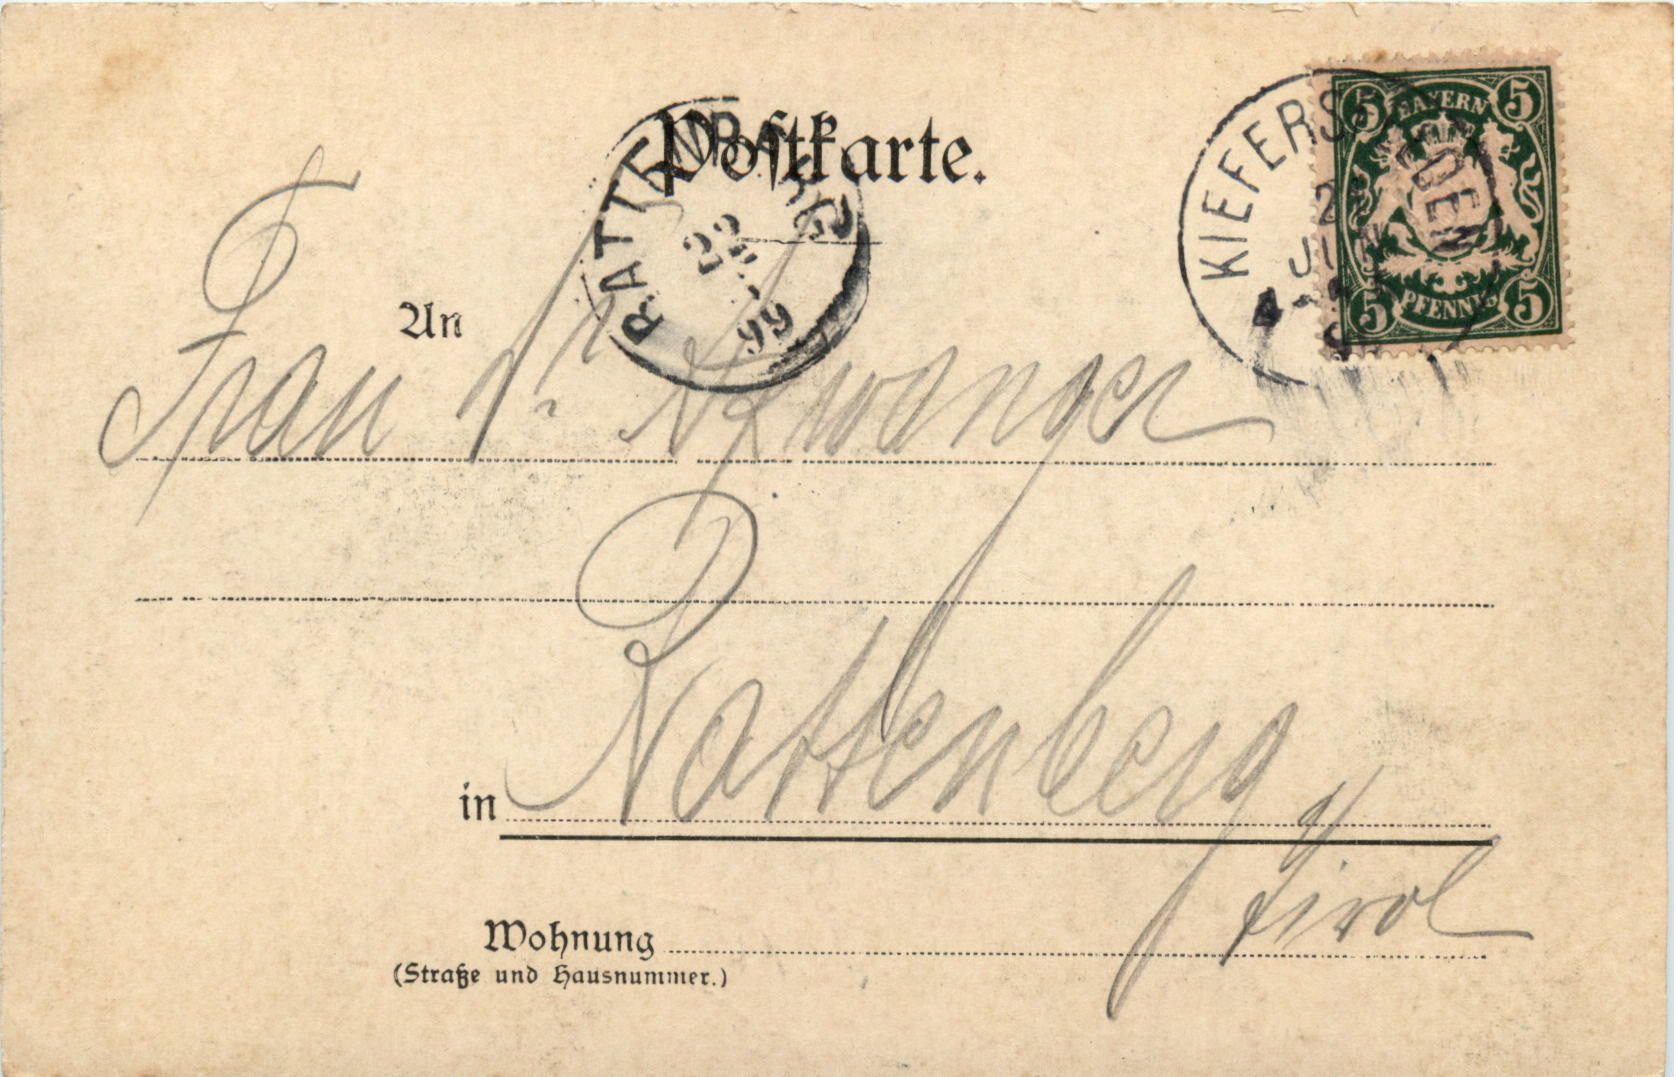 Postkarte.
RATTENBERG
22
99
KIEFERSFELDEN
JUN
BAYERN
5 5
5 5
PFENNIG
An
Frau Dr.
Rattenberg
in
Tirol
Wohnung
(Straße und Hausnummer.)